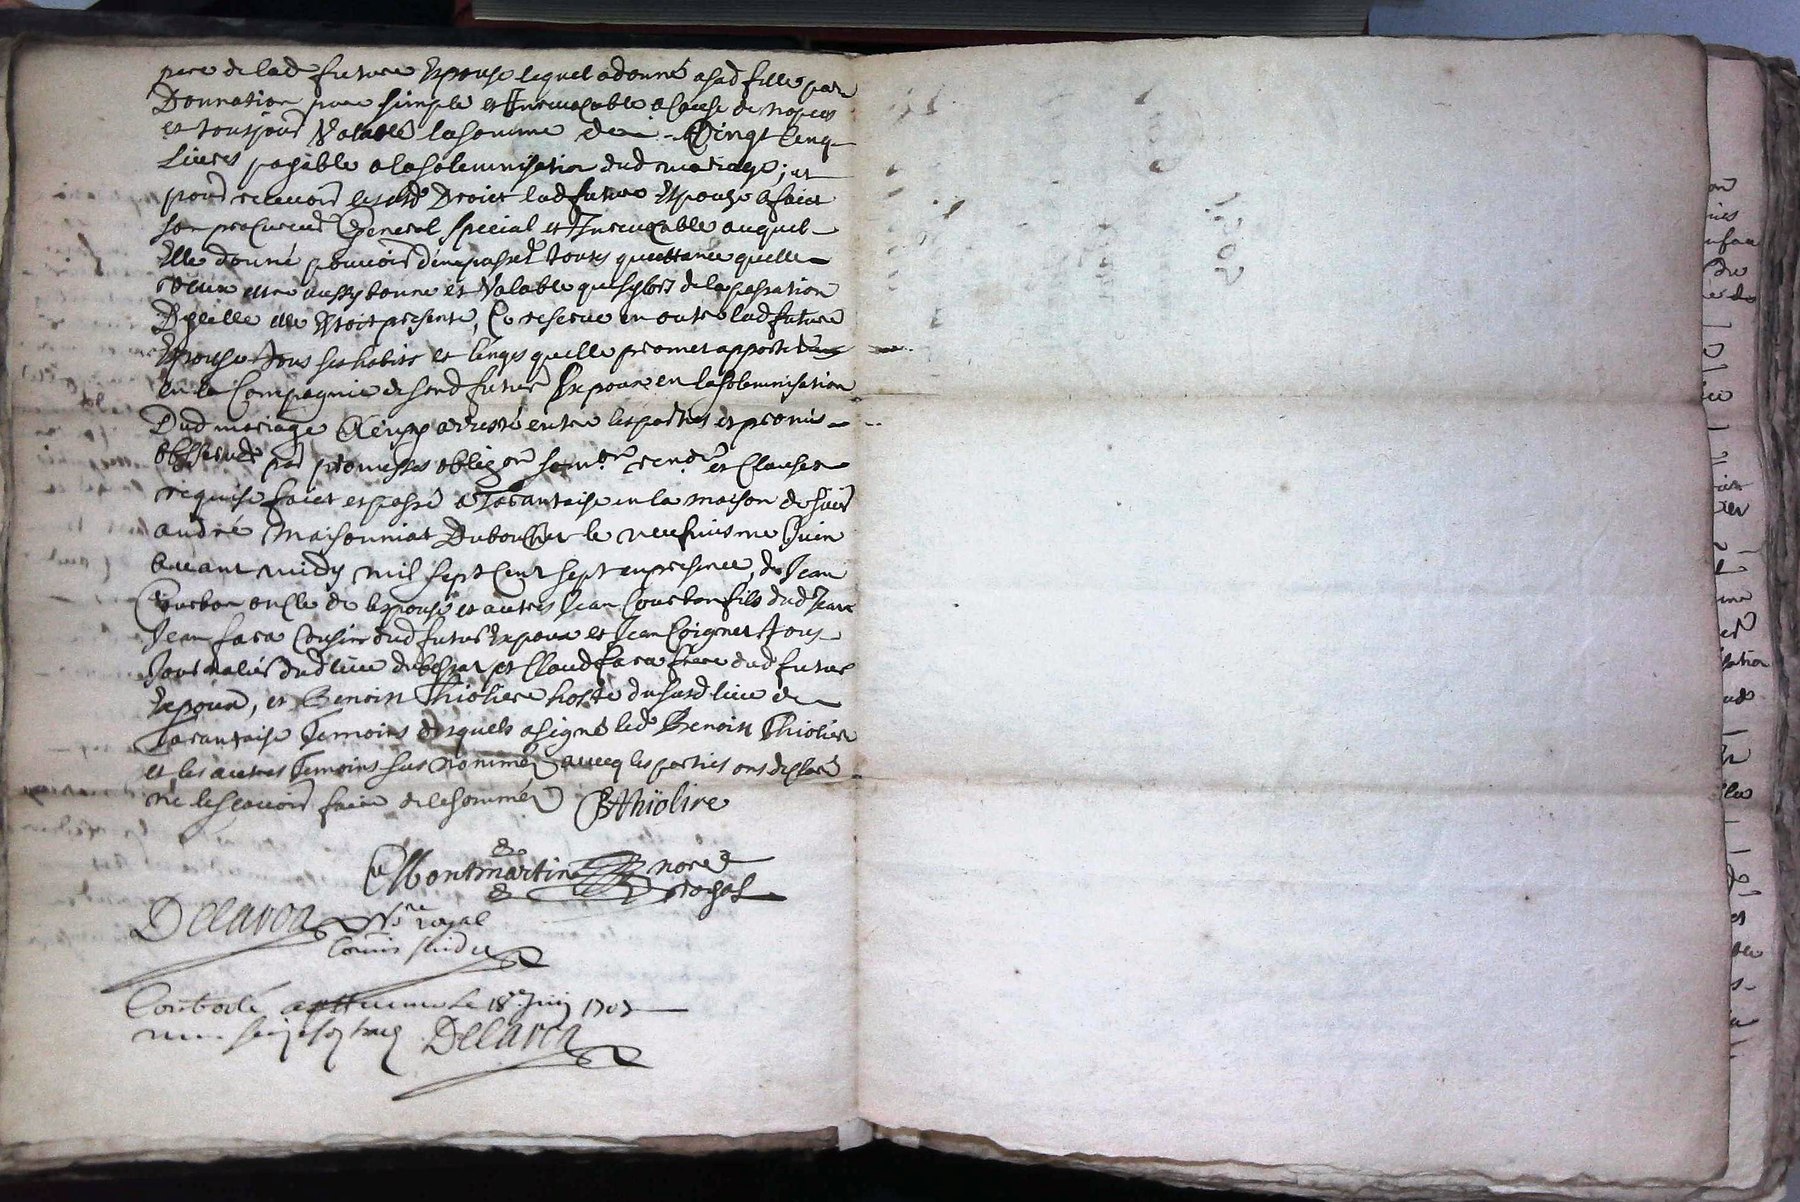 pere de lad future Espouse lequel a donné a sad fille par
Donnation pure simple et Irrevocable a cause de nopces
et tousjours Valable la somme de Vingt Cinq
Livres payable a la solemnisation dud mariage; et
pour recevoir lesds Droits lad future Espouze a faict
son procureur General special et Irrevocable auquel
Elle donne pouvoir d'en passer toutes quittance quelle
veut estre aussy bonne et Valable que sy lors de la passation
D'icelle elle Estoit presente, Ce reserve en outre lad future
Espouse tous ses habits et linges quelle promet apporter
en la Compagnie de sond futur Espoux en la solemnisation
Dud mariage Ainsy aresté entre les parties et promis
observer par promesses obligon soumon renon et Clauses
requise faict et passé a Tarantaise en la maison de sieur
André Maisonniat Dubouchet le neufviesme Juin
avant midy mil sept Cent sept en presence de Jean
Courbon oncle de lespouse et autre Jean Courbon fils dud Jean
Jean fara Cousin dud futur Espoux et Jean Coignet tous
Journaliers dud lieu du bessat et Claud fara frere dud futur
Espoux, et Benoist Thioliere hoste du susd lieu de
Tarantaise Temoins desquels a signé led Benoist Thioliere
et les autres Temoins sus nommés avecq les parties ont declaré
ne le sçavoir faire de ce sommés BThiolire
De Montmartin nore
royal
Delaroa Nre royal
Commis
Controlé a St Etienne le 18e Juin 1707
Delaroa